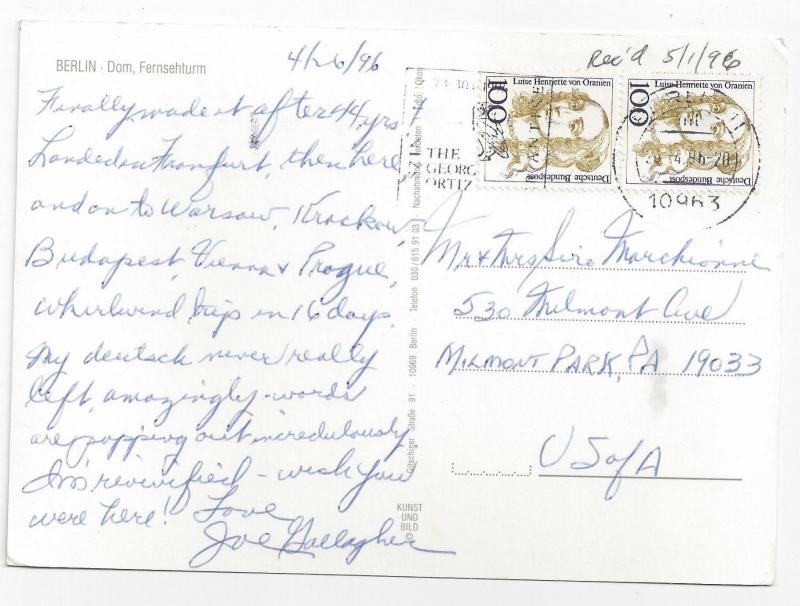 BERLIN · Dom, Fernsehturm
4/26/96
Finally made it after 44 yrs.
Landed in Franfurt, then here,
and on to Warsaw, Krackow,
Budapest, Vienna & Prague,
whirlwind trip in 16 days.
My deutsch never really
left, amazingly - words
are popping out incredulously
I'm revivified - wish you
were here! Love
Joe Gallagher
KUNST
UND
BILD
©
Gitschiner Straße 91 · 10969 Berlin · Telefon 030/615 91 03
Rec'd 5/1/96
THE
GEORG
ORTIZ
Luise Henriette von Oranien
100
Deutsche Bundespost
Luise Henriette von Oranien
100
Deutsche Bundespost
10963
Mr & Mrs Siro Marchionni
530 Milmont Ave
MILMONT PARK, PA 19033
US of A